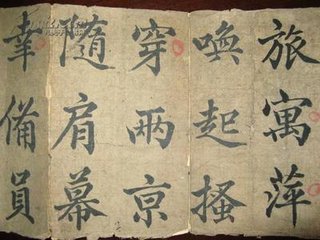 旅寓萍
喚起搔
穿兩京
隨肩幕
幸備員